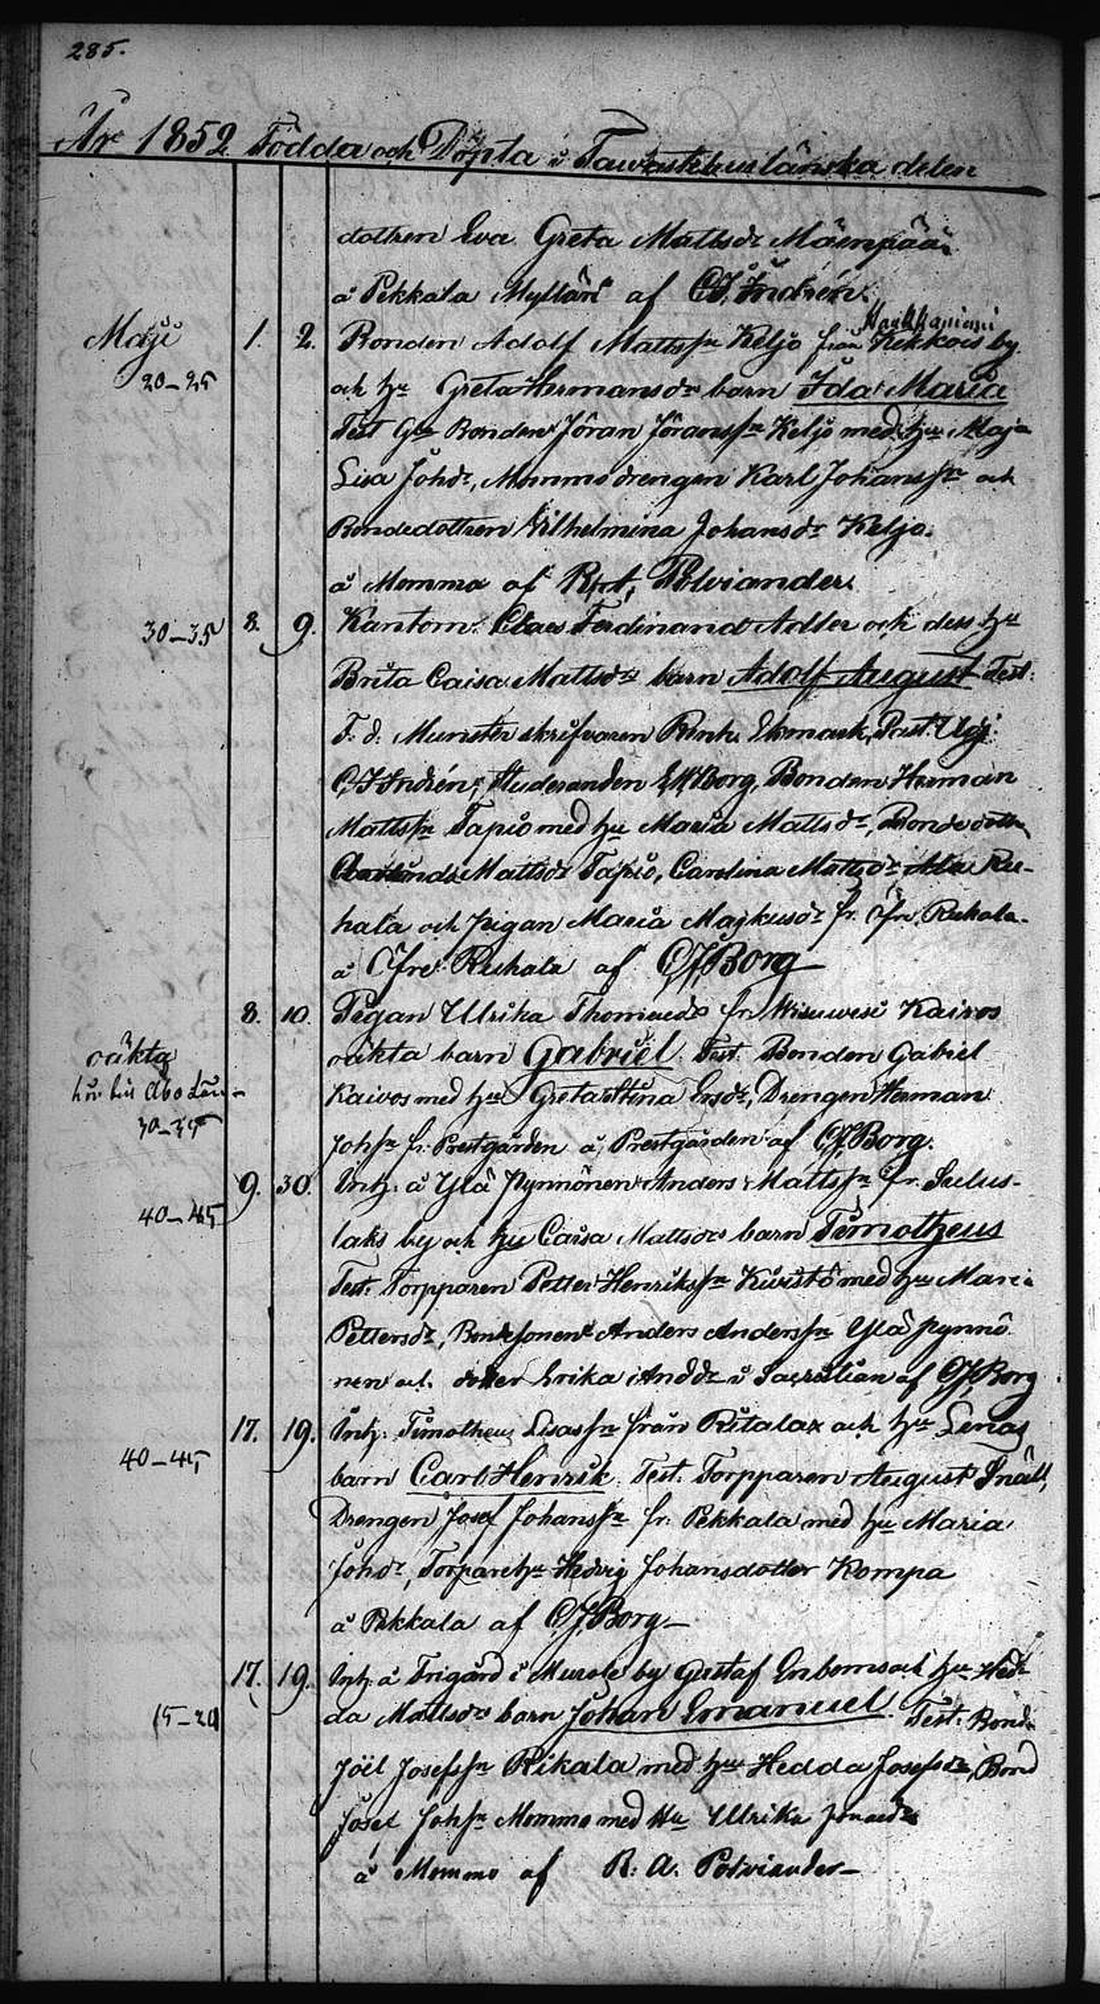 285.
År 1852 Födda och Döpta i Tawastehuslänska delen
dottren Eva Greta Mattsdr Mäenpää
å Pekkala Myllärs af CJ Indrén.
Haukkaniemi
Maji 1. 2. Bonden Adolf Mattssn Keljo från Kekkois by
20-25 och hu Greta Hermansdrs barn Ida Maria
Test Gla Bonden Jöran Jöranssn Keljo med hu Maja
Lisa Johdr, Mommo drengen Karl Johanssn och
Bondedottren Vilhelmina Johansdr Keljo.
å Mommo af Polviander.
30-35 8. 9. Kantorn Claes Ferdinand Adler och dess hu
Brita Caisa Mattsdrs barn Adolf August Test:
F. d. Munsterskrifvaren Ekmark, Past.
CJ Indrén, Studeranden Borg, Bonden Herman
Mattssn Tapio med hu Maria Mattsdr, Bondedottr
Mattsdr Tapio, Carolina Mattsdr Ala Ru-
hala och pigan Maria Markusdr fr. Öfre Ruhala.
å Öfre Ruhala af CJ Borg
8. 10. Pigan Ulrika Thomasdr fr Kaivos
oäkta oäkta barn Gabriel. Test. Bonden Gabriel
hör till Åbo Län- Kaivos med hu Greta Stina Ersdr, Drengen Herman
30-35 Johsn fr. Prestgården å Prestgården af CJ Borg.
9. 30. Inh: å Ylä Pynnönen Anders Mattssn fr. Sulus-
40-45 laks by och hu Caisa Mattsdrs barn Timotheus
Test. Torpparen Petter Henrikssn med hu Maria
Pettersdr, Bondesonen Anders Anderssn Ylä Pynnö
nen och dotter Erika Anddr i Sacristian af CJ Borg
17. 19. Inh: Timotheus Lisassn från Ritala och hu Lenas
40-45 barn Carl Henrik. Test. Torpparen August Snäll,
Drengen Josef Johanssn fr. Pekkala med hu Maria
Johdr, Torparehu Hedvig Johansdotter Kompa
å Pekkala af CJ Borg
17. 19. Inh å Frigård i Murole by Gustaf Enboms och hu Hed-
15-20 da Mattsdrs barn Johan Emanuel. Test. Bond.
Joël Josefssn Rikala med hu Hedda Josefsdr, Bond
Josef Johsn Mommo med Hu Ulrika Jonasdr
å Mommo af R. A. Polviander